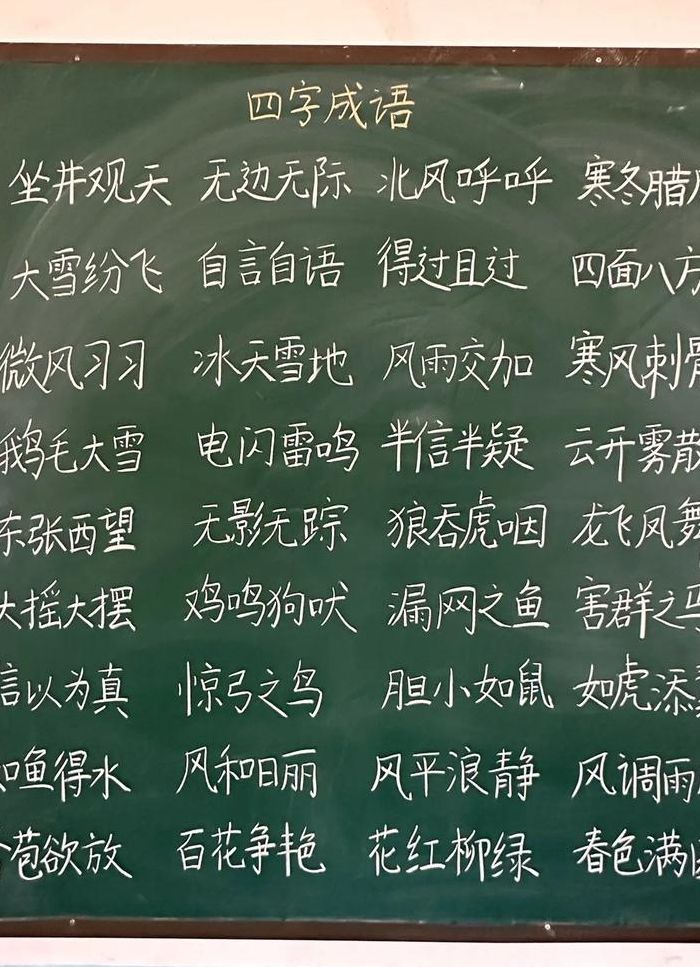 四字成语
坐井观天 无边无际 北风呼呼 寒冬腊月
大雪纷飞 自言自语 得过且过 四面八方
微风习习 冰天雪地 风雨交加 寒风刺骨
鹅毛大雪 电闪雷鸣 半信半疑 云开雾散
东张西望 无影无踪 狼吞虎咽 龙飞凤舞
大摇大摆 鸡鸣狗吠 漏网之鱼 害群之马
信以为真 惊弓之鸟 胆小如鼠 如虎添
如鱼得水 风和日丽 风平浪静 风调雨
苞欲放 百花争艳 花红柳绿 春色满